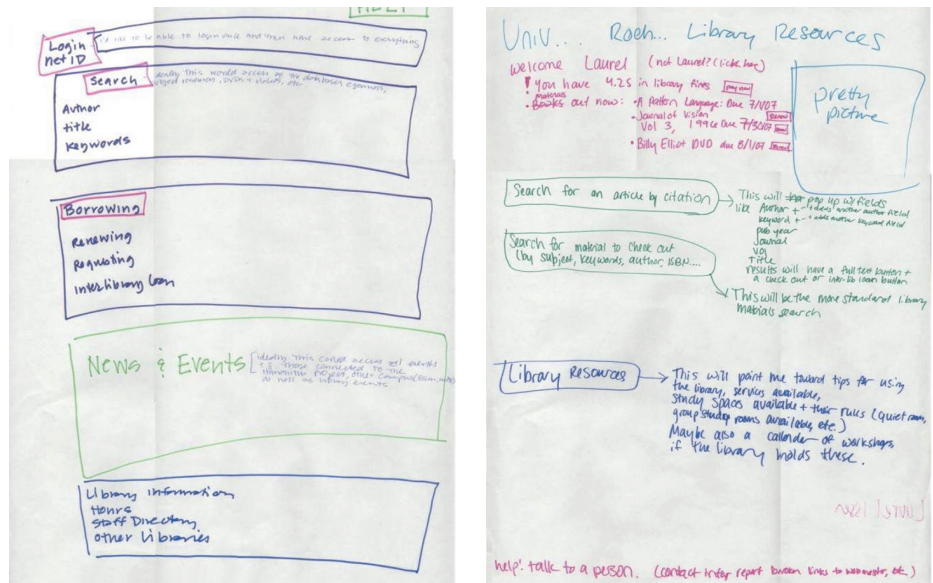 HELP
Login
net ID
I'd like to be able to login once and then have access to everything
Search
ideally this would access all the databases,
DVDs + videos, etc
Author
title
Keywords
Borrowing
Renewing
Requesting
Interlibrary Loan
News & Events
ideally this could access all events
those connected to the
Humanities Project, other campus
as well as library events
Library information
Hours
Staff Directory
other Libraries
Univ... Roch... Library Resources
Welcome Laurel (not Laurel? Click here)
! You have 4.25 in library fines pay now
materials
• Books out now: • A Pattern Language: Due 7/1/07
• Journal of Vision
Vol 3, 1996 Due 7/30/07
• Billy Elliot DVD due 8/1/07
pretty
picture
Search for an article by citation
This will pop up w/ fields
like Author + another author field
keyword + another keyword field
pub year
journal
vol
title
results will have a full text button +
a check out or inter-lib loan button
Search for material to check out
(by subject, keywords, author, ISBN....
This will be the more standard library
materials search
Library Resources
This will point me toward tips for using
the library, services available,
study spaces available + their rules (quiet room,
group study rooms available, etc.)
Maybe also a calender of workshops
if the library holds these.
help! talk to a person. (contact info report broken links to webmaster, etc.)